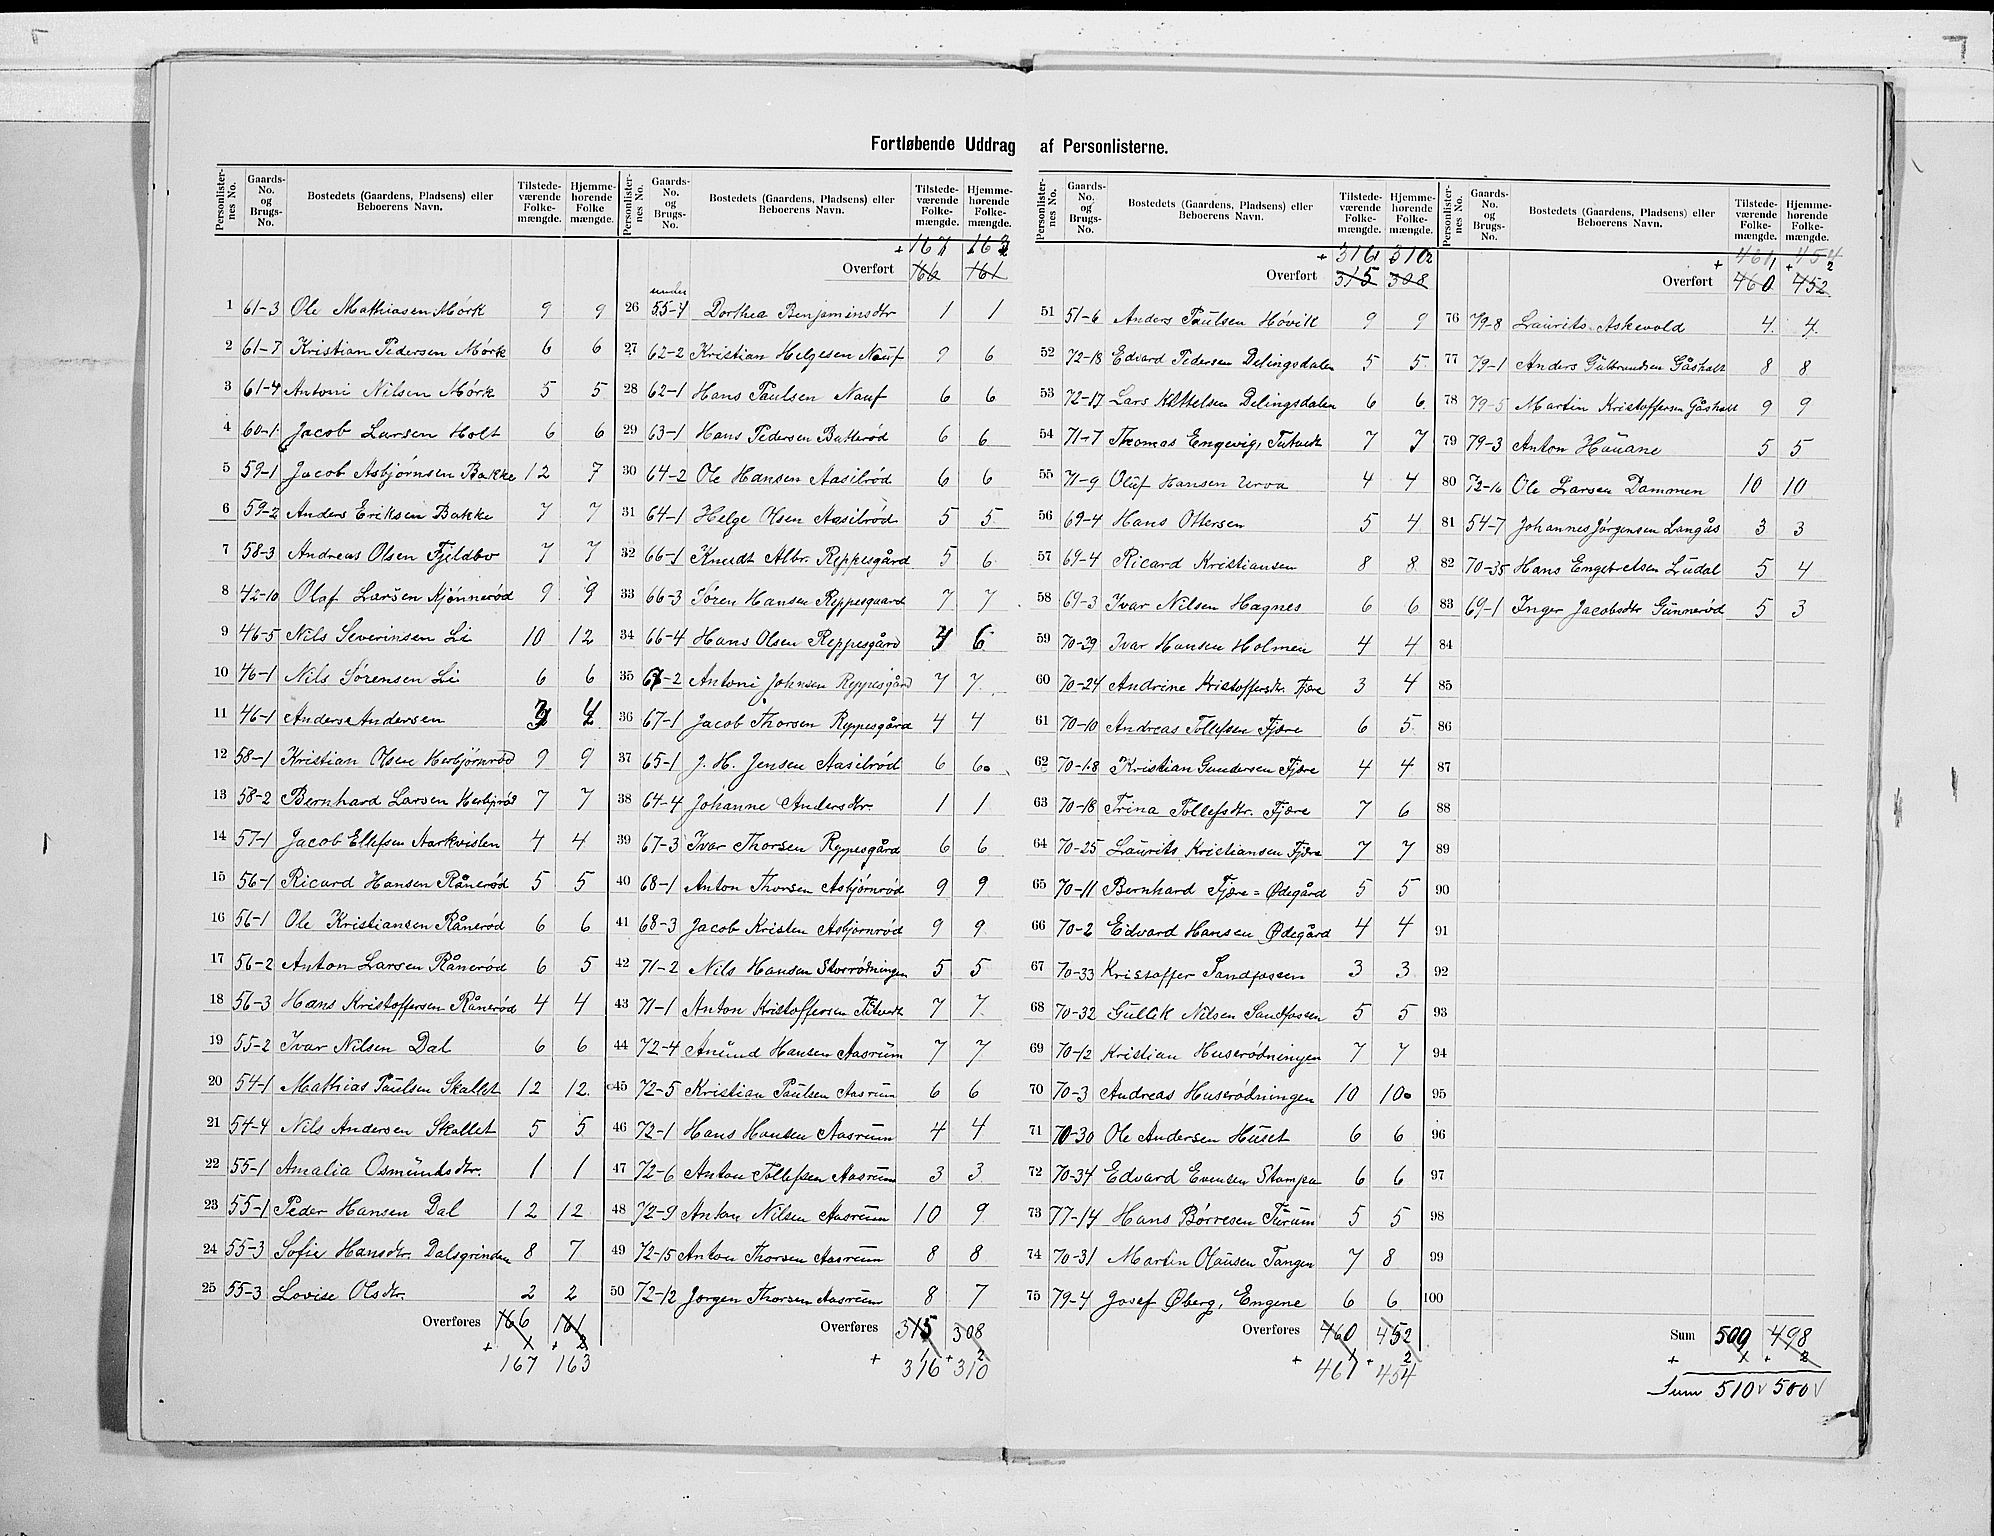 Fortløbende Uddrag af Personlisterne.
Personlisternes No. Gaards-No. og Brugs-No. Bostedets (Gaardens, Pladsens) eller Beboerens Navn. Tilstedeværende Folkemængde. Hjemmehørende Folkemængde.
1 61-3 Ole Mathiasen Mørk 9 9
2 61-7 Kristian Pedersen Mørk 6 6
3 61-4 Antoni Nilsen Mørk 5 5
4 60-1 Jacob Larsen Holt 6 6
5 59-1 Jacob Asbjørnsen Bakke 12 7
6 59-2 Anders Eriksen Bakke 7 7
7 58-3 Andreas Olsen Fjeldbo 7 7
8 42-10 Olaf Larsen Mjønnerød 9 9
9 46-5 Nils Severinsen Li 10 12
10 46-1 Nils Sørensen Li 6 6
11 46-1 Anders Andersen
12 58-1 Kristian Olsen Herbjørnrød 9 9
13 58-2 Bernhard Larsen 7 7
14 57-1 Jacob Ellefsen Aarkvislen 4 4
15 56-1 Ricard Hansen Rånerød 5 5
16 56-1 Ole Kristiansen Rånerød 6 6
17 56-2 Anton Larsen Rånerød 6 5
18 56-3 Hans Kristoffersen Rånerød 4 4
19 55-2 Ivar Nilsen Dal 6 6
20 54-1 Mathias Paulsen Skallet 12 12
21 54-4 Nils Andersen Skallet 5 5
22 55-1 Amalia Osmundsdtr. 1 1
23 55-1 Peder Hansen Dal 12 12
24 55-3 Sofie Hansdtr. Dalsgrinden 8 7
25 55-3 Lovise Olsdtr. 2 2
Overføres 166 161
+ 1 + 2
167 163
Personlisternes No. Gaards-No. og Brugs-No. Bostedets (Gaardens, Pladsens) eller Beboerens Navn. Tilstedeværende Folkemængde. Hjemmehørende Folkemængde.
+ 167 163
Overført 166 161
26 under 55-4 Dorthea Benjaminsdtr 1 1
27 62-2 Kristian Helgesen Nauf 9 6
28 62-1 Hans Paulsen Nauf 6 6
29 63-1 Hans Pedersen Batterød 6 6
30 64-2 Ole Hansen Aasilrød 6 6
31 64-1 Helge Olsen Aasilrød 5 5
32 66-1 Knudt Albr. Reppesgård 5 6
33 66-3 Søren Hansen Reppesgaard 7 7
34 66-4 Hans Olsen Reppesgård 6
35 67-2 Antoni Johnsen Reppesgård 7 7
36 67-1 Jacob Thorsen Reppesgård 4 4
37 65-1 J. H. Jensen Aasilrød 6 6
38 64-4 Johanne Andersdtr. 1 1
39 67-3 Ivar Thorsen Reppesgård 6 6
40 68-1 Anton Thorsen Asbjørnrød 9 9
41 68-3 Jacob Kristen Asbjørnrød 9 9
42 71-2 Nils Hansen Storrødningen 5 5
43 71-1 Anton Kristoffersen Tutvedt 7 7
44 72-4 Amund Hansen Aasrum 7 7
45 72-5 Kristian Paulsen Aasrum 6 6
46 72-1 Hans Hansen Aasrum 4 4
47 72-6 Anton Tollefsen Aasrum 3 3
48 72-9 Anton Nilsen Aasrum 10 9
49 72-15 Anton Thorsen Aasrum 8 8
50 72-12 Jørgen Thorsen Aasrum 8 7
Overføres 315 308
+ 1 + 2
316 310
Personlisternes No. Gaards-No. og Brugs-No. Bostedets (Gaardens, Pladsens) eller Beboerens Navn. Tilstedeværende Folkemængde. Hjemmehørende Folkemængde.
+ 316 310
Overført 315 308
51 51-6 Anders Paulsen Høvik 9 9
52 72-18 Edvard Pedersen Delingsdalen 5 5
53 72-17 Lars Kittelsen Delingsdalen 6 6
54 71-7 Thomas Engevig, Tutvedt 7 7
55 71-9 Oluf Hansen Urva 4 4
56 69-4 Hans Ottersen 5 4
57 69-4 Ricard Kristiansen 8 8
58 69-3 Ivar Nilsen Hagnes 6 6
59 70-29 Ivar Hansen Holmen 4 4
60 70-24 Andrine Kristoffersdtr. Fjære 3 4
61 70-10 Andreas Tollefsen Fjære 6 5
62 70-18 Kristian Gundersen Fjære 4 4
63 70-18 Trina Tollefsdtr. Fjære 7 6
64 70-25 Laurits Kristiansen Fjære 7 7
65 70-11 Bernhard Fjære = Ødegård 5 5
66 70-2 Edvard Hansen Ødegård 4 4
67 70-33 Kristoffer Sandfossen 3 3
68 70-32 Gullik Nilsen Sandfossen 5 5
69 70-12 Kristian Huserødningen 7 7
70 70-3 Andreas Huserødningen 10 10
71 70-30 Ole Andersen Huset 6 6
72 70-34 Edvard Evensen Stampa 6 6
73 77-14 Hans Børresen Furum 5 5
74 70-31 Martin Olausen Tangen 7 8
75 79-4 Josef Øberg, Engene 6 6
Overføres 460 452
+ 1 + 2
461 454
Personlisternes No. Gaards-No. og Brugs-No. Bostedets (Gaardens, Pladsens) eller Beboerens Navn. Tilstedeværende Folkemængde. Hjemmehørende Folkemængde.
+ 461 + 454
Overført 460 452
76 79-8 Laurits Askevold 4 4
77 79-1 Anders Gulbrandsen Gåsholt 8 8
78 79-5 Martin Kristoffersen Gåsholt 9 9
79 79-3 Anton Hauane 5 5
80 72-16 Ole Larsen Dammen 10 10
81 54-7 Johannes Jørgensen Langås 3 3
82 70-35 Hans Engebretsen Ludal 5 4
83 69-1 Inger Jacobsdtr Gunnerød 5 3
84
85
86
87
88
89
90
91
92
93
94
95
96
97
98
99
100
Sum 509 498
+ 1 + 2
Sum 510 500